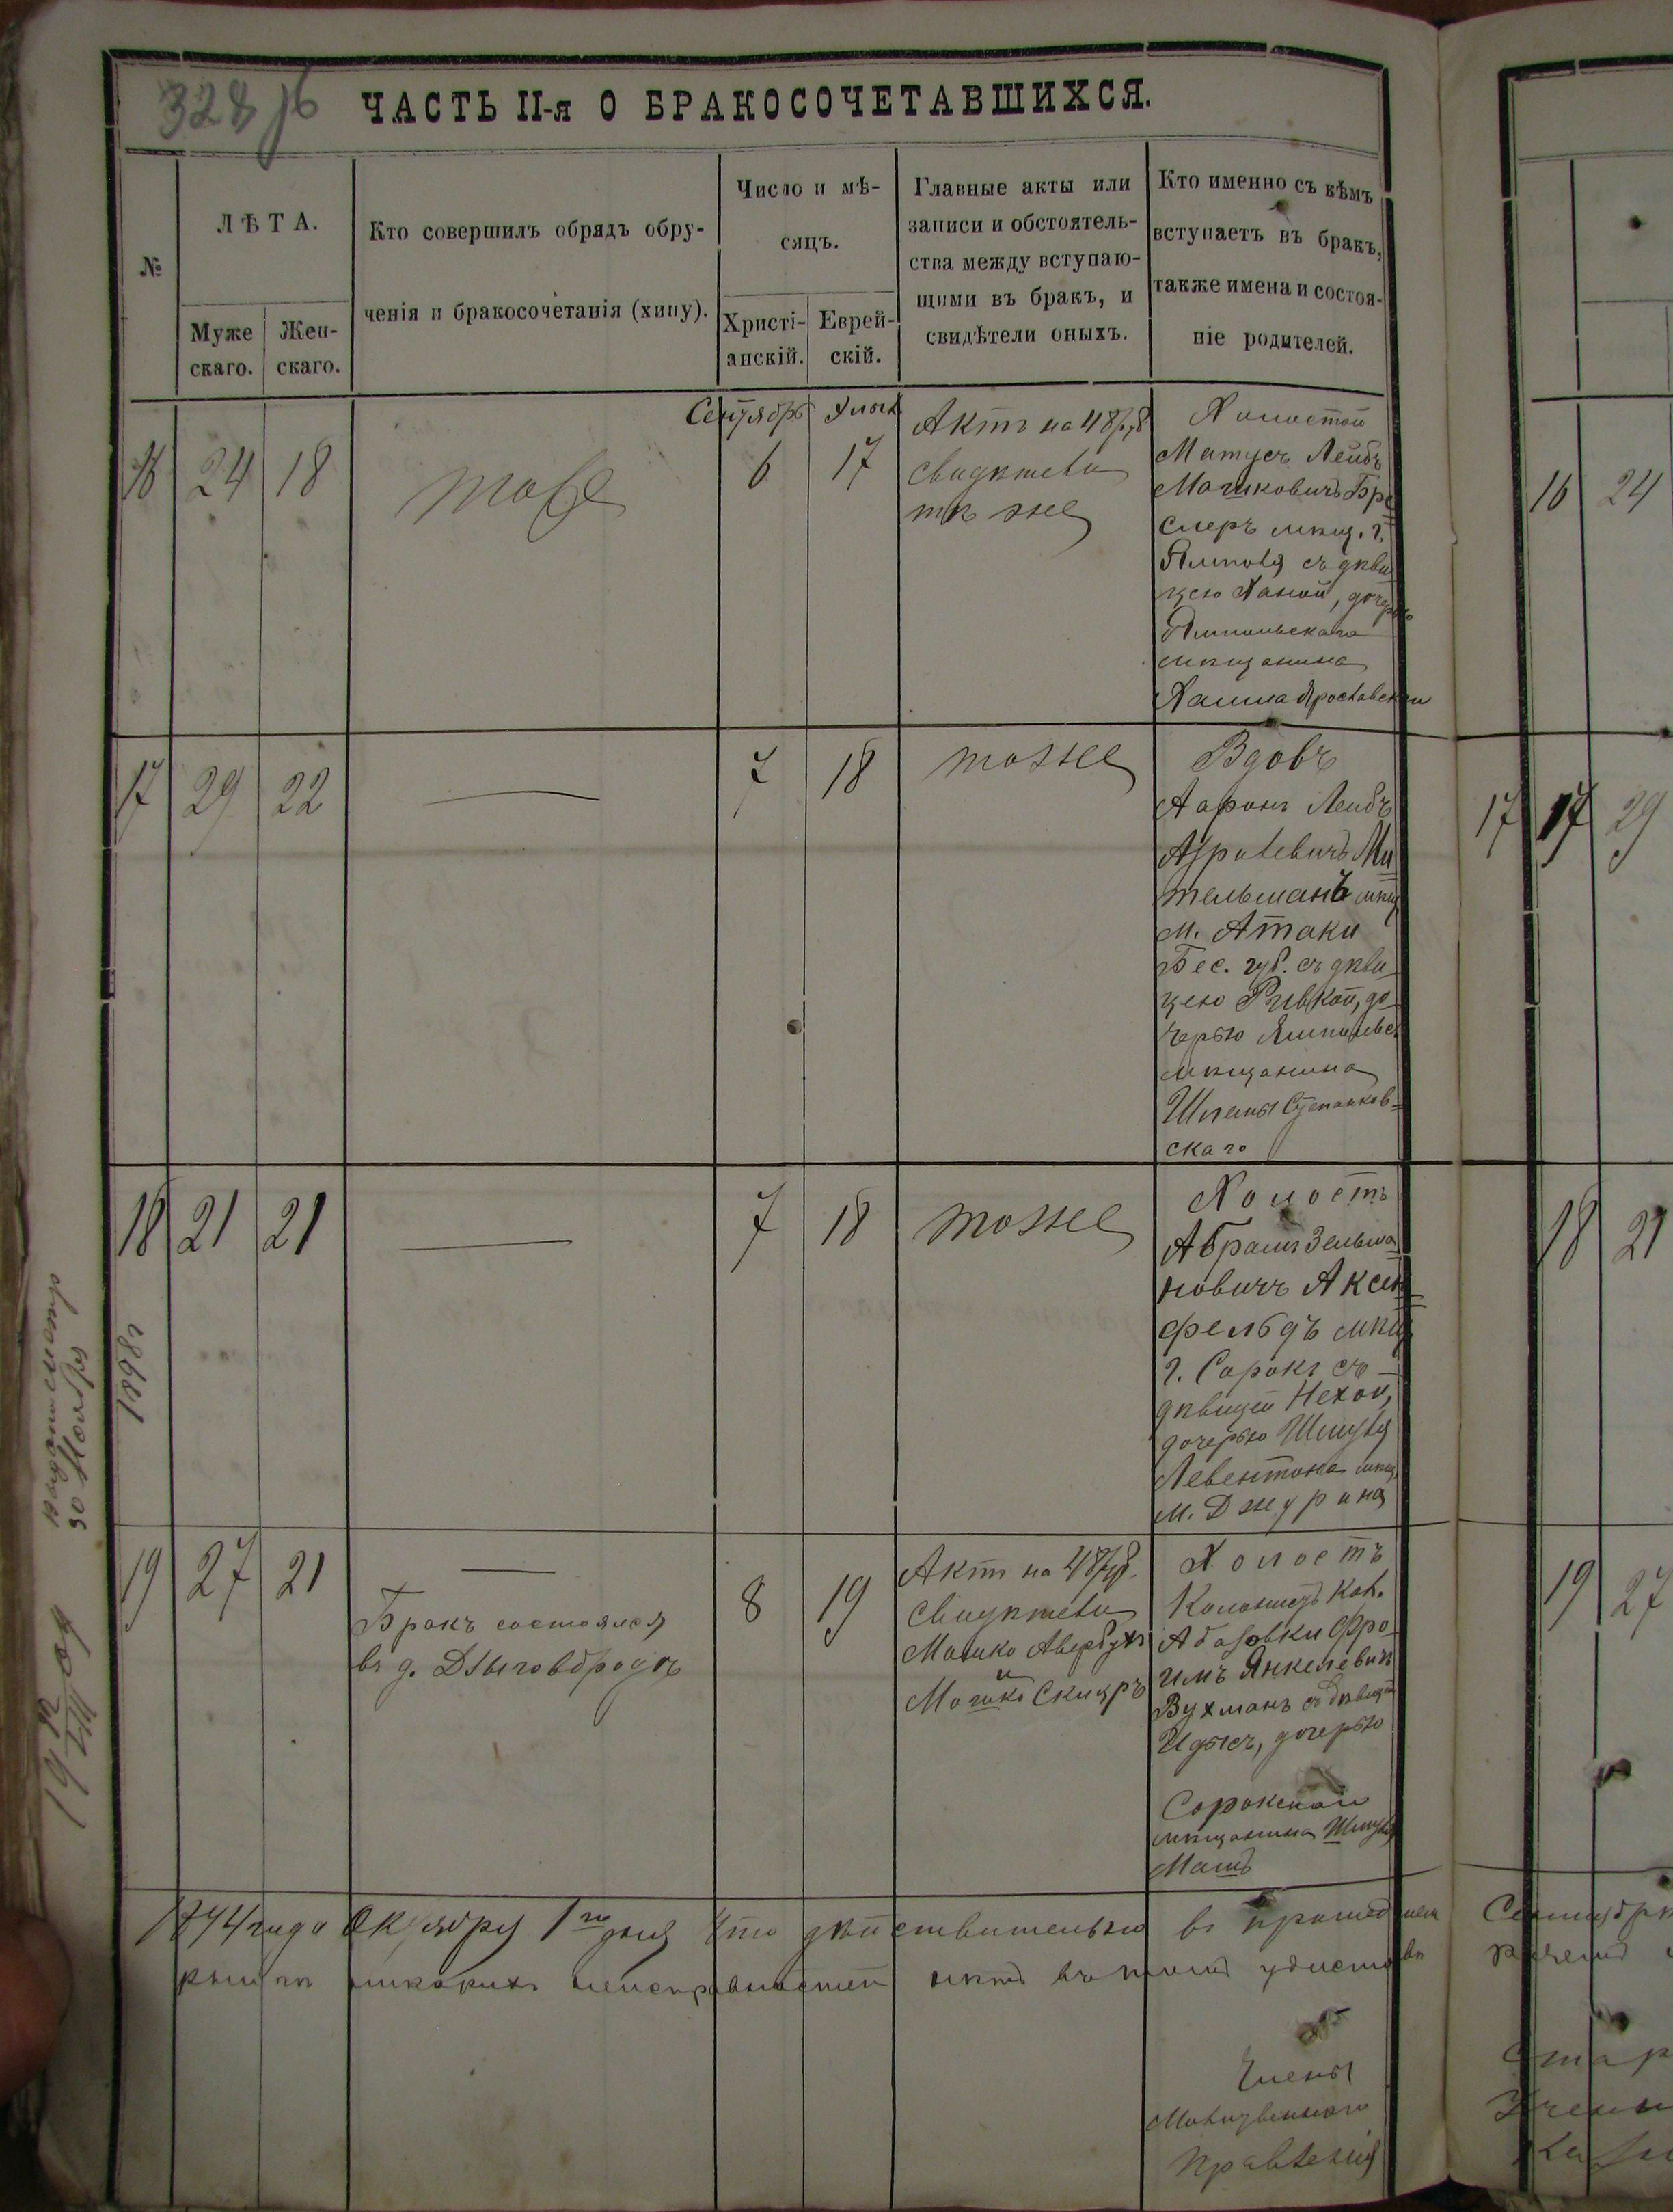 328 об
ЧАСТЬ II-я О БРАКОСОЧЕТАВШИХСЯ.
№
ЛѢТА.
Муже
скаго.
Жен-
скаго.
Кто совершилъ обрядъ обру-
ченія и бракосочетанія (хипу).
Число и мѣ-
сяцъ.
Христі-
анскій.
Еврей-
скій.
Главные акты или
записи и обстоятель-
ства между вступаю-
щими въ бракъ, и
свидѣтели оныхъ.
Кто именно съ кѣмъ
вступаетъ въ бракъ,
также имена и состоя-
ніе родителей.
Сентябрь
16 24 18
тоже
6 17
Актъ на 48 руб
свидѣтели
тѣ же
Холостой
Матусъ Лейбъ
Мошковичъ Бре
слеръ мѣщ. г.
Ямполя съ дѣви
цею Ханой, дочерью
Ямпольскаго
мѣщанина
Хаима Ярославскаго
17 29 22
7 18
тоже
Вдовъ
Ааронъ Лейбъ
Азрилевичъ Ми
тельманъ мѣщ
м. Атаки
Бес. губ. съ дѣви
цею Ривкой, до
черью Ямпольс.
мѣщанина
Шлемы Степанков=
скаго
18 21 21
7 18
тоже
Холостъ
Абрамъ Зельма
новичъ Аксен
фельдъ мѣщ
г. Сорокъ съ
дѣвицей Нехой,
дочерью Шмуля
Левентона мѣщ
м. Джурина
19 27 21
Бракъ состоялся
въ д. Дзыговбродъ
8 19
Актъ на 48 руб.
свидѣтели
Мошко Авербухъ
и
Мошко Скляръ
Холостъ
Колонистъ Кол.
Абазовки Фро
имъ Янкелевичъ
Вухманъ съ дѣвицей
Идысъ, дочерью
Сорокскаго
мѣщанина Шмуля
Машъ
1874 года Октября 1го дня Что дѣйствительно въ прошедшем
никакихъ неисправностей нѣтъ въ томъ удостовѣ
Члены
Молитвеннаго
Правленія
1898г
30 Ноября
19 12/VIII 09
16 24
17 17 29
18 21
19 27